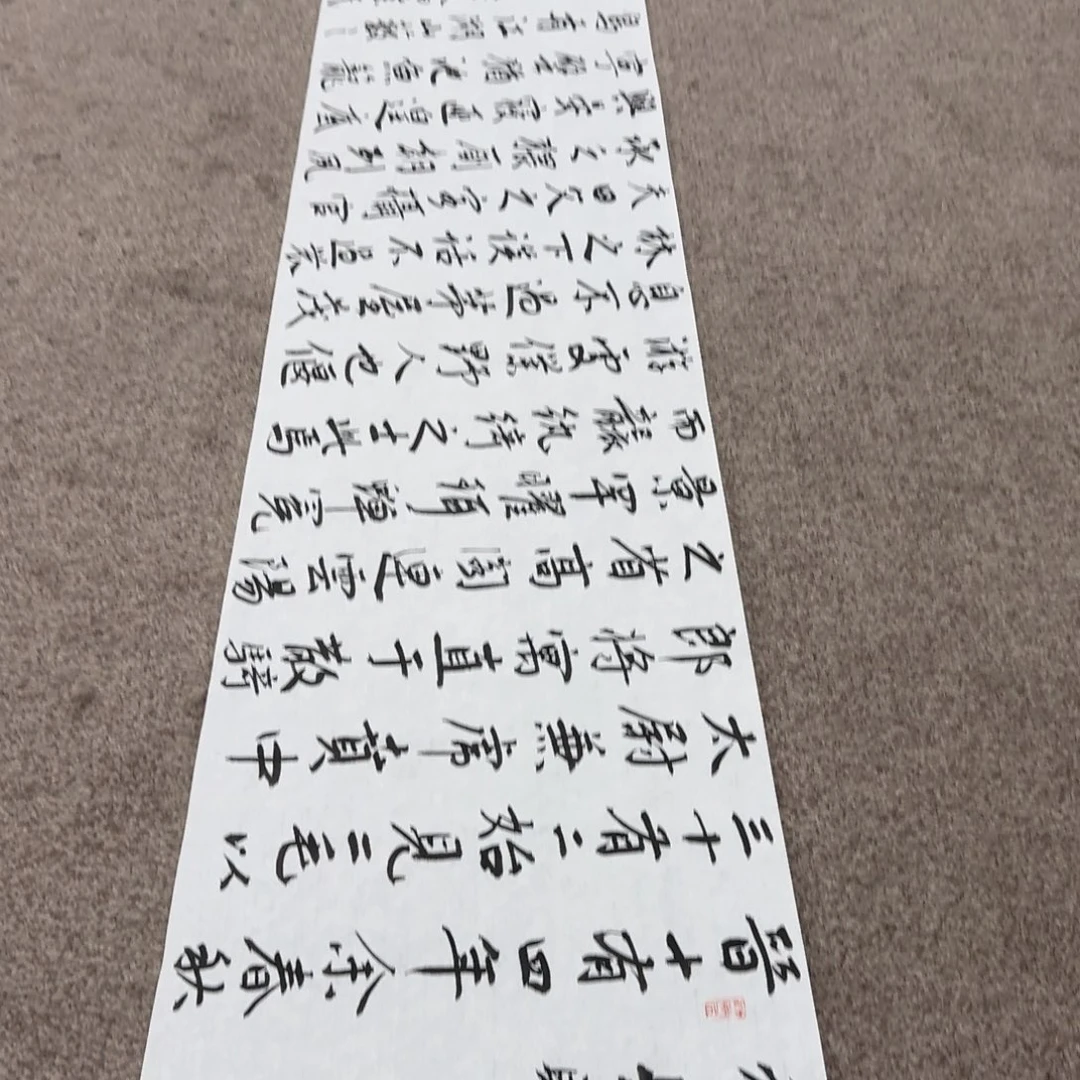 晉十有四年余春秋
三十有二始見二毛以
太尉兼虎賁中
郎將寓直于散騎
之省高閣連雲陽
景罕曜珥蟬冕
而襲紈綺之士此焉
游處僕野人也偃
息不過茅屋茂
林之下談話不過農
夫田父之客攝官
承乏猥廁朝列夙
興晏寢匪遑底
寧譬猶池魚籠
鳥有江湖山藪之